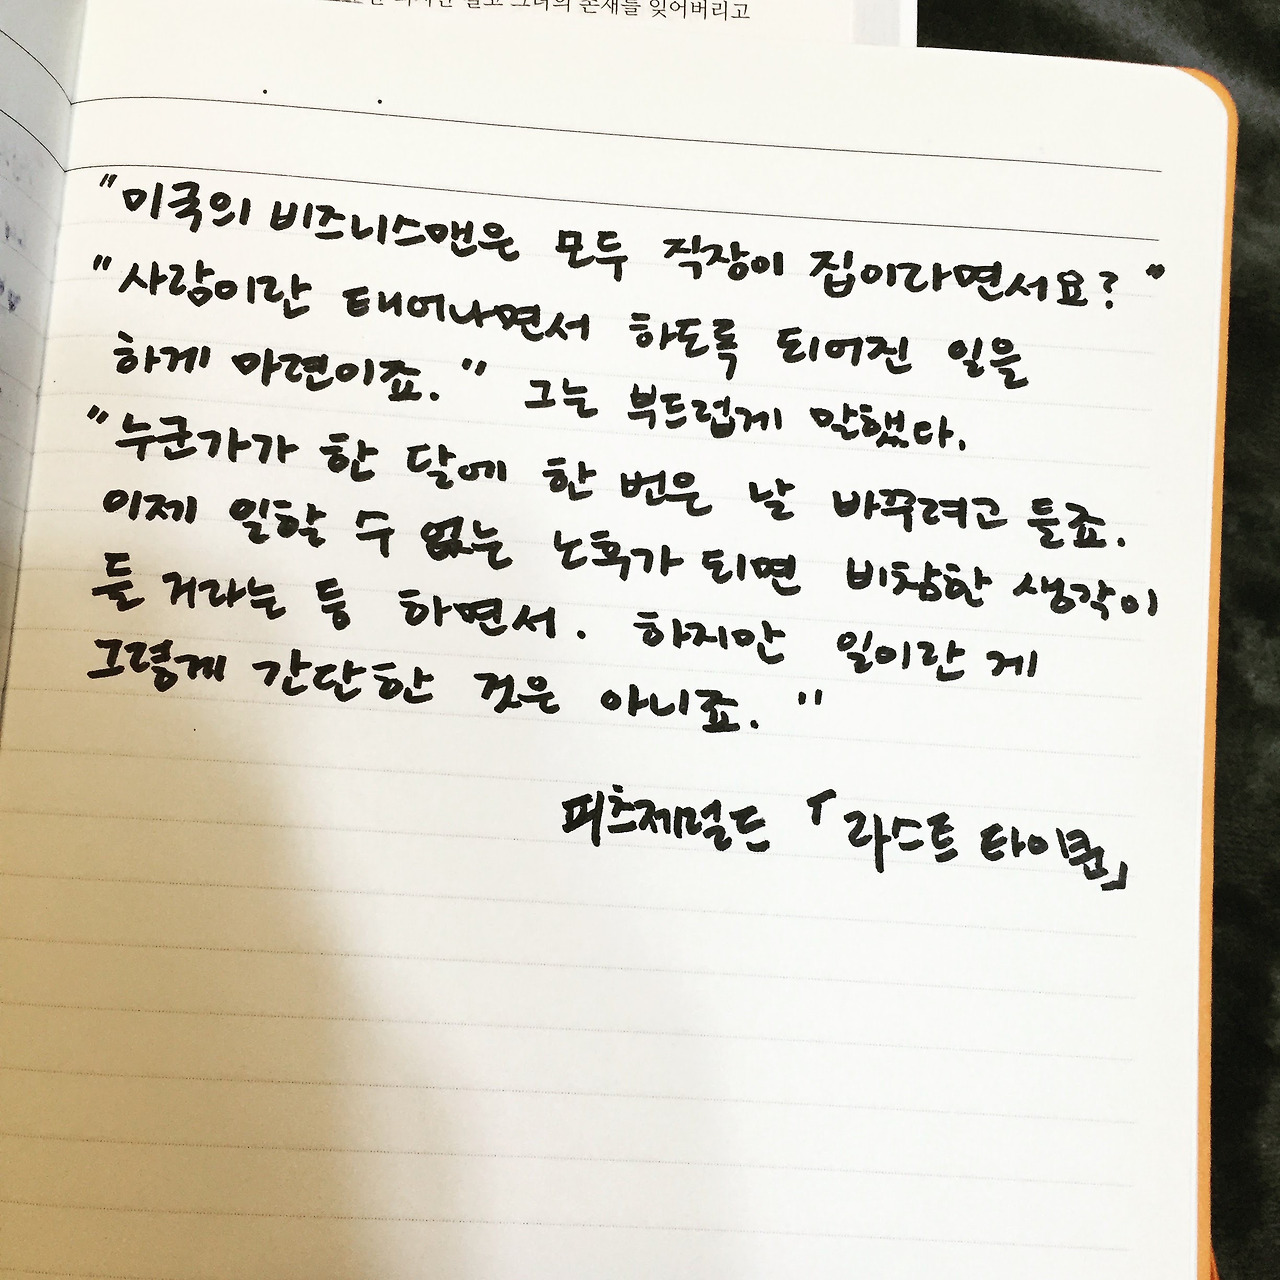 말고 그녀의 존재를 잊어버리고
"미국의 비즈니스맨은 모두 직장이 집이라면서요?"
"사람이란 태어나면서 하도록 되어진 일을
하게 마련이죠." 그는 부드럽게 말했다.
"누군가가 한 달에 한 번은 날 바꾸려고 들죠.
이제 일할 수 없는 노혹가 되면 비참한 생각이
들 거라는 등 하면서. 하지만 일이란 게
그렇게 간단한 것은 아니죠."
피츠제럴드 「라스트 타이쿤」